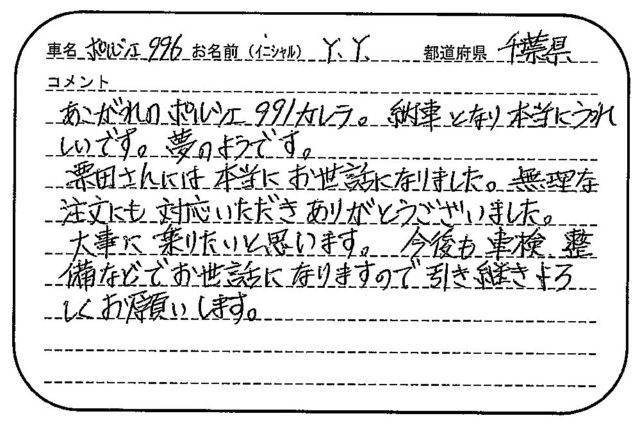 車名 ポルシェ 996 お名前（イニシャル） Y.Y. 都道府県 千葉県
コメント
あこがれのポルシェ 991カレラ。 納車となり本当にうれ
しいです。夢のようです。
栗田さんには本当にお世話になりました。無理な
注文にも対応いただきありがとうございました。
大事に乗りたいと思います。 今後も車検、整
備などでお世話になりますので引き継きよろ
しくお願いします。